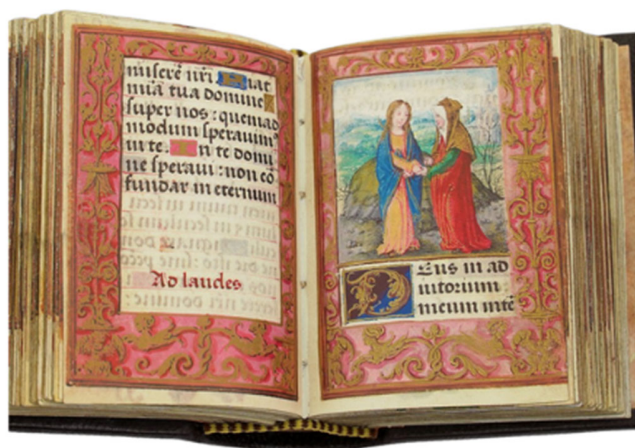 miserē nr̄i. Fiat
mīa tua domine
super nos: quemad
modum speravimꝰ
in te. In te domi
ne speravi: non cō
fundar in eternum
Ad laudes.
Deus in ad
iutorium
meum intē